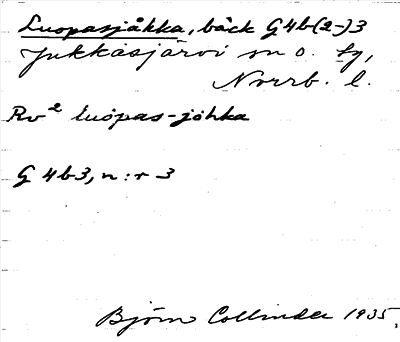 Luopasjåkka, bäck G4b(2-)3
Jukkasjärvi sn o. tg,
Norrb. l.
Rv² luòpas-jòhka
G 4b3, n:r 3
Björn Collinder 1935.